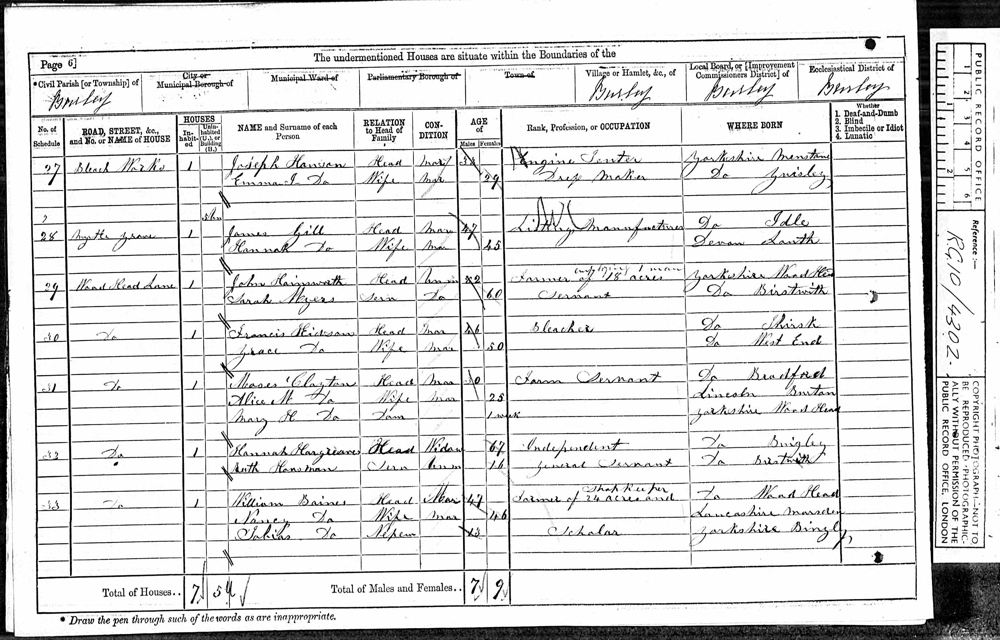 Page 6] The undermentioned Houses are situate within the Boundaries of the
Civil Parish [or Township] of City or Municipal Borough of Municipal Ward of Parliamentary Borough of Town of Village or Hamlet, &c., of Local Board, or [Improvement Commissioners District] of Ecclesiastical District of
Burley Burley Burley Burley
No. of Schedule ROAD, STREET, &c., and No. or NAME of HOUSE HOUSES In-habited Uninhabited (U.), or Building (B.) NAME and Surname of each Person RELATION to Head of Family CON-DITION AGE of Males Females Rank, Profession, or OCCUPATION WHERE BORN Whether 1. Deaf-and-Dumb 2. Blind 3. Imbecile or Idiot 4. Lunatic
27 Bleach Works 1 Joseph Hanson Head Mar Engine Tenter Yorkshire Menstone
Emma Do Wife Mar 29 Do
28 Myrtle Grove 1 James Gill Head Mar 47 Manufacturer Do Idle
Hannah Do Wife Mar 45 Devon
29 Wood Head Lane 1 John Hainsworth Head Farmer of 18 acres employing 1 man Yorkshire Wood Head
Sarah Myers Serv Do 60 Servant Do Birstwith
30 Do 1 Francis Head Mar 46 Bleacher Do Thirsk
Grace Do Wife Mar 50 Do West End
31 Do 1 Moses Clayton Head Mar Farm Servant Do Bradford
Alice M Do Wife Mar 25 Lincoln
Mary H Do Daur 1 week Yorkshire Wood Head
32 Do 1 Hannah Hargreaves Head Widow 67 Independent Do Bingley
Ruth Serv Unm 16 General Servant Do Birstwith
33 Do 1 William Baines Head Mar 47 Farmer of 24 acres and Shop Keeper Do Wood Head
Nancy Do Wife Mar 46 Lancashire Marsden
Tobias Do Nephew 13 Scholar Yorkshire Bingley
Total of Houses.. 7 Total of Males and Females.. 7 9
* Draw the pen through such of the words as are inappropriate.
PUBLIC RECORD OFFICE
1 2 3 4 5 6
Reference :-
RG.10/4302
COPYRIGHT PHOTOGRAPH-NOT TO BE REPRODUCED PHOTOGRAPHICALLY WITHOUT PERMISSION OF THE PUBLIC RECORD OFFICE, LONDON